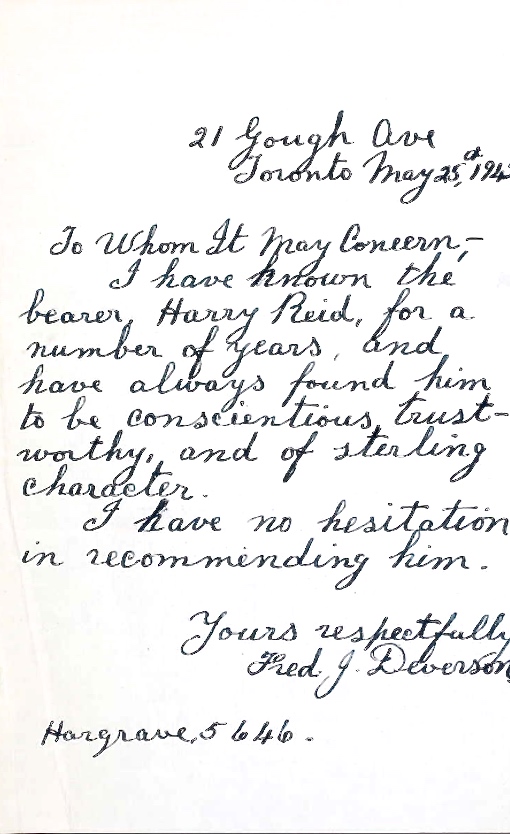 21 Gough Ave
Toronto May 25, 194
To Whom It May Concern,-
I have known the
bearer, Harry Reid, for a
number of years, and
have always found him
to be conscientious, trust-
worthy, and of sterling
character.
I have no hesitation
in recommending him.
Yours respectfully
Fred. J. Deverson
Hargrave, 5646.